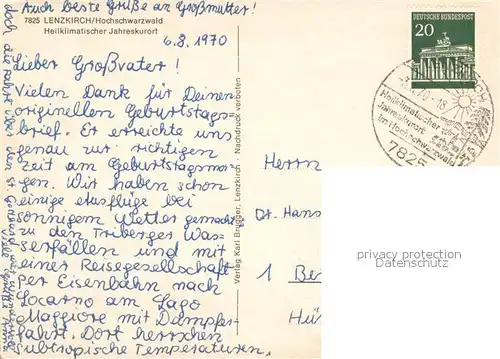 Auch beste Grüße an Großmutter!
7825 LENZKIRCH/Hochschwarzwald
Heilklimatischer Jahreskurort
6.8.1970
Lieber Großvater!
Vielen Dank für Deinen
originellen Geburtstags-
brief. Er erreichte uns
genau zur richtigen
Zeit am Geburtstagsmor-
gen. Wir haben schon
einige Ausflüge bei
sonnigem Wetter gemacht
zu den Triberger Was-
serfällen und mit
einer Reisegesellschaft
per Eisenbahn nach
Locarno am Lago
Maggiore mit Dampfer-
fahrt. Dort herrschen
subtropische Temperaturen.
doch die Fahrt über den St. Gotthard war
Viele
Verlag Karl Brugger, Lenzkirch Nachdruck verboten
DEUTSCHE BUNDESPOST
20
Heilklimatischer
Jahreskurort
im Hochschwarzwald
7825
Herrn
Dr. Hans
1 Be
privacy protection
Datenschutz